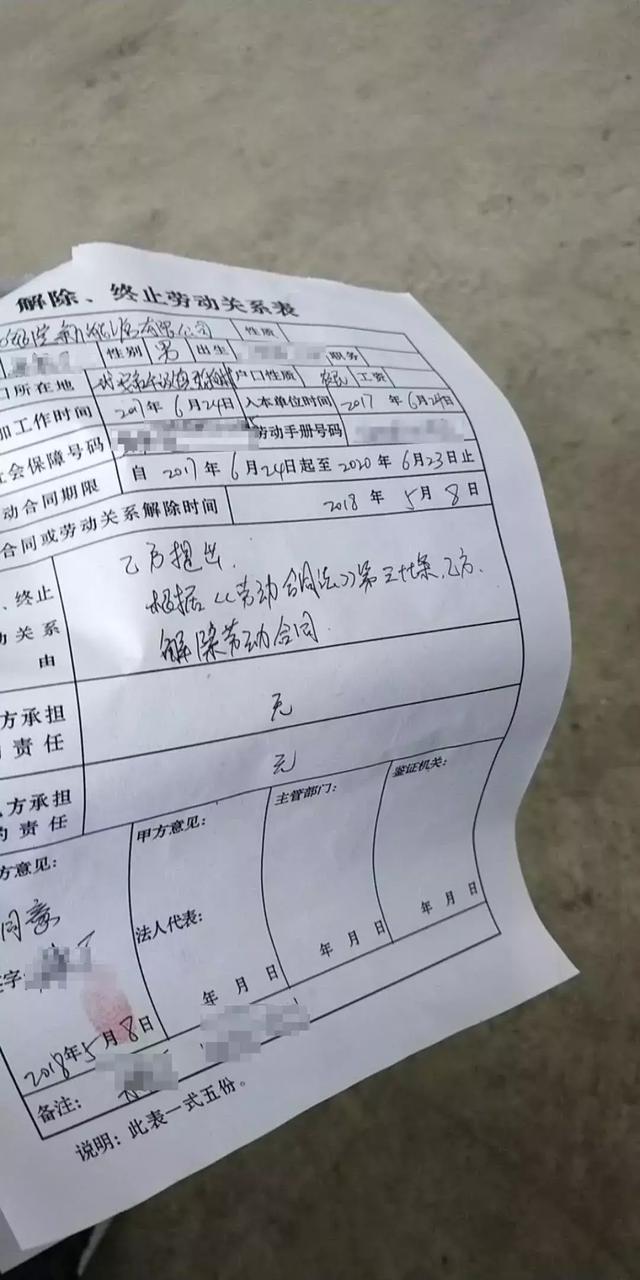 解除、终止劳动关系表
新能源有限公司 性质
性别 男 出生 职务
口所在地 户口性质 农民 工资
加工作时间 2017年6月24日 入本单位时间 2017年6月24日
会保障号码 劳动手册号码
动合同期限 自2017年6月24日起至2020年6月23日止
合同或劳动关系解除时间 2018年5月8日
、终止
动关系
由
乙方提出,
根据《劳动合同法》第三十七条,乙方
解除劳动合同
方承担
责任
无
方承担
的责任
无
方意见:
同意
字
2018年5月8日
甲方意见:
法人代表:
年 月 日
主管部门:
年 月 日
鉴证机关:
年 月 日
备注:
说明:此表一式五份。